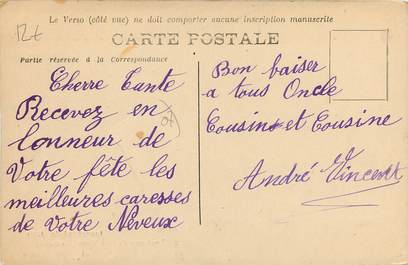 Le Verso (côté vue) ne doit comporter aucune inscription manuscrite
CARTE POSTALE
Partie réservée à la Correspondance
Cherre Tante
Recevez en
lonneur de
Votre fête les
meilleures caresses
de votre Neveux
Bon baiser
a tous Oncle
Cousin et Cousine
André Vincent